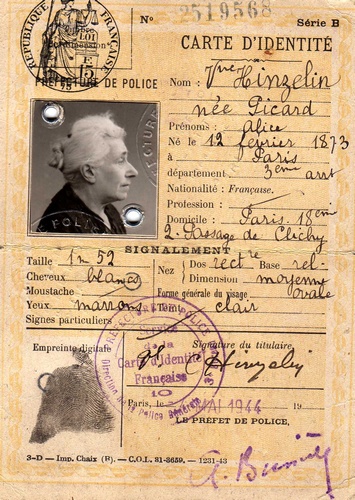 RÉPUBLIQUE FRANÇAISE
LOI
N° 2519568
Série B
CARTE D'IDENTITÉ
PREFECTURE DE POLICE
Nom : Hinzelin
née Picard
Prénoms : Alice
Né le 12 février 1873
à Paris
département 3eme arrt
Nationalité : Française.
Profession :
Domicile : Paris 18eme
2. Passage de Clichy
SIGNALEMENT
Taille 1m52
Cheveux blancs
Moustache
Yeux marrons
Signes particuliers
Nez Dos rectre Base rel-
Dimension moyenne
Forme générale du visage ovale
Teint clair
Empreinte digitale
Signature du titulaire,
Hinzelin
Service
de la
Carte d'Identité
Française
Direction de la Police Générale
Paris, le MAI 1944 19
LE PREFET DE POLICE,
3-D — Imp. Chaix (B). — C.O.L. 31-3659. — 1231-43